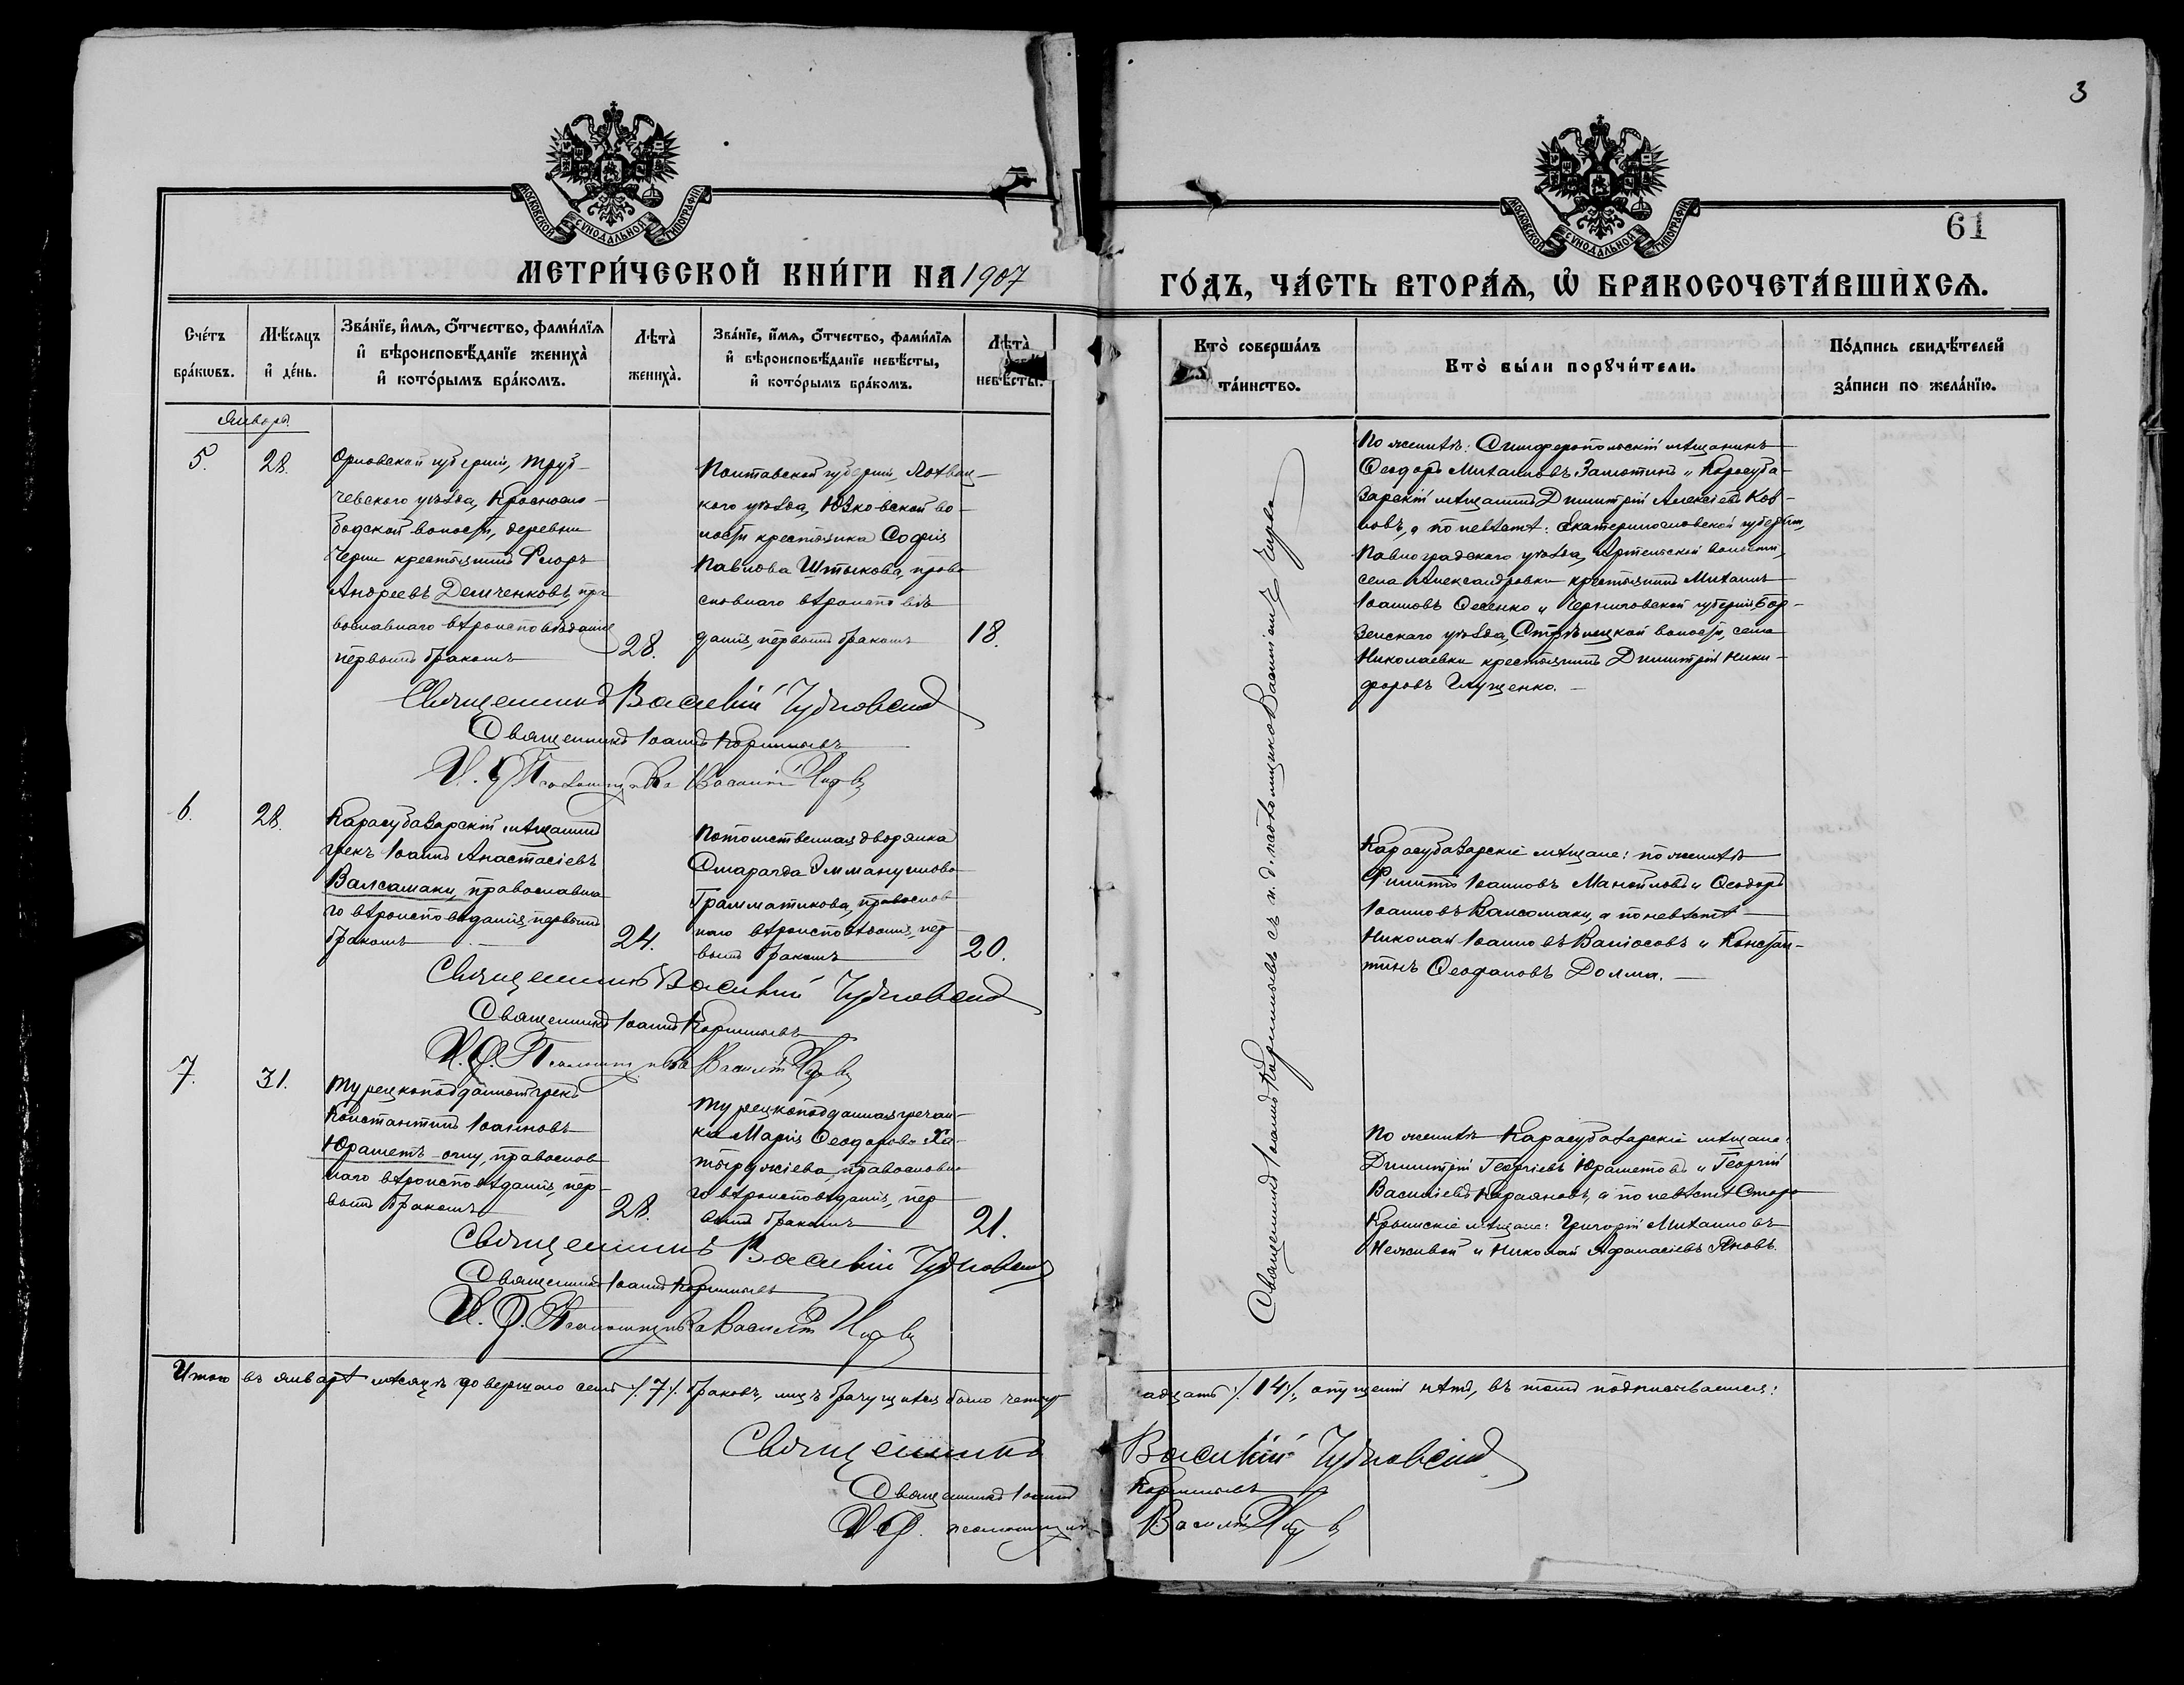 3
МОСКОВСКОЙ СУНОДАЛЬНОЙ ТИПОГРАФІИ
МОСКОВСКОЙ СУНОДАЛЬНОЙ ТИПОГРАФІИ
61
МЕТРИ́ЧЕСКОЙ КНИ́ГИ НА 1907
ГО́ДЪ, ЧА́СТЬ ВТОРА́Ѧ, Ѽ БРАКОСОЧЕТА́ВШИХСѦ.
Сче́тъ бра́кѡвъ.
Мѣ́сѧцъ и҆ де́нь.
Зва́нїе, и҆́мѧ, ѻ҆́тчество, фами́лїѧ
и҆ вѣроисповѣ́данїе жениха̀
и҆ кото́рымъ бра́комъ.
Лѣта̀ жениха̀.
Зва́нїе, и҆́мѧ, ѻ҆́тчество, фами́лїѧ
и҆ вѣроисповѣ́данїе невѣ́сты,
и҆ кото́рымъ бра́комъ.
Лѣта̀
невѣ́сты.
Кто̀ соверша́лъ
та́инство.
Кто̀ бы́ли порꙋчи́тели.
По́дпись свидѣ́телей
за́писи по жела́нїю.
Январь
5.
28.
Орловской губерніи, Труб-
чевского уѣзда, Красносло-
бодской волости, деревни
Черни крестьянинъ Флоръ
Андреевъ Демченковъ, пра-
вославнаго вѣроисповѣданія
первымъ бракомъ
28.
Полтавской губерніи, Лохвиц-
кого уѣзда, Юзковской во-
лости крестьянка Софія
Павлова Штыкова, право
славнаго вѣроисповѣ
данія, первымъ бракомъ
18.
По женихѣ: Симферопольскій мѣщанинъ
Ѳеодоръ Михаиловъ Замотинъ и Карасуба-
зарскій мѣщанинъ Димитрій Алексіевъ Коз-
ловъ, а по невѣстѣ: Екатеринославской губерніи,
Павлоградского уѣзда, Артельской волости,
села Александровки крестьянинъ Михаилъ
Іоанновъ Осенко и Черниговской губерніи Бор-
зенскаго уѣзда, Стрѣлецкой волости, села
Николаевки крестьянинъ Димитрій Ники-
форовъ Глущенко.
Священникъ Василій Чудновскій
Священникъ Іоаннъ
И. д. Псаломщика Василій
6.
28.
Карасубазарскій мѣщанинъ
грекъ Іоаннъ Анастасіевъ
Валсамаки, православна
го вѣроисповѣданія, первымъ
бракомъ
24.
Потомственная дворянка
Смарагда Эммануилова
Грамматикова, православ
наго вѣроисповѣданія, пер
вымъ бракомъ
20.
Карасубазарскіе мѣщане: по женихѣ
Филиппъ Іоанновъ Манойловъ и Ѳеодоръ
Іоанновъ Валсамаки, а по невѣстѣ
Николай Іоанновъ Валіосовъ и Констан-
тинъ Ѳеофановъ Долма.
Священникъ Василій Чудновскій
Священникъ Іоаннъ
И. д. Псаломщика Василій
7.
31.
Турецкоподданный грекъ
Константинъ Іоанновъ
Юраметъ-оглу, православ
наго вѣроисповѣданія, пер-
вымъ бракомъ
28.
Турецкоподданная гречан-
ка Марія Ѳеодорова Ха-
православна
го вѣроисповѣданія, пер
вымъ бракомъ
21.
По женихѣ Карасубазарскіе мѣщане:
Димитрій Георгіевъ Юраметовъ и Георгій
Василіевъ Караяновъ, а по невѣстѣ Старо
Крымскіе мѣщане: Григорій Михаиловъ
Неживой и Николай Аѳанасіевъ Яновъ.
Священникъ Василій Чудновскій
Священникъ Іоаннъ
И. д. Псаломщика Василій
Священникъ Іоаннъ съ и. д. псаломщика Василіемъ
Итого въ январѣ мѣсяцѣ совершено семь /.7/. браковъ, лицъ брачущихся было четыр
надцать /.14/., опущеній нѣтъ, въ томъ подписываемся:
Священникъ Василій Чудновскій
Священникъ Іоаннъ
И. д. псаломщика Василій